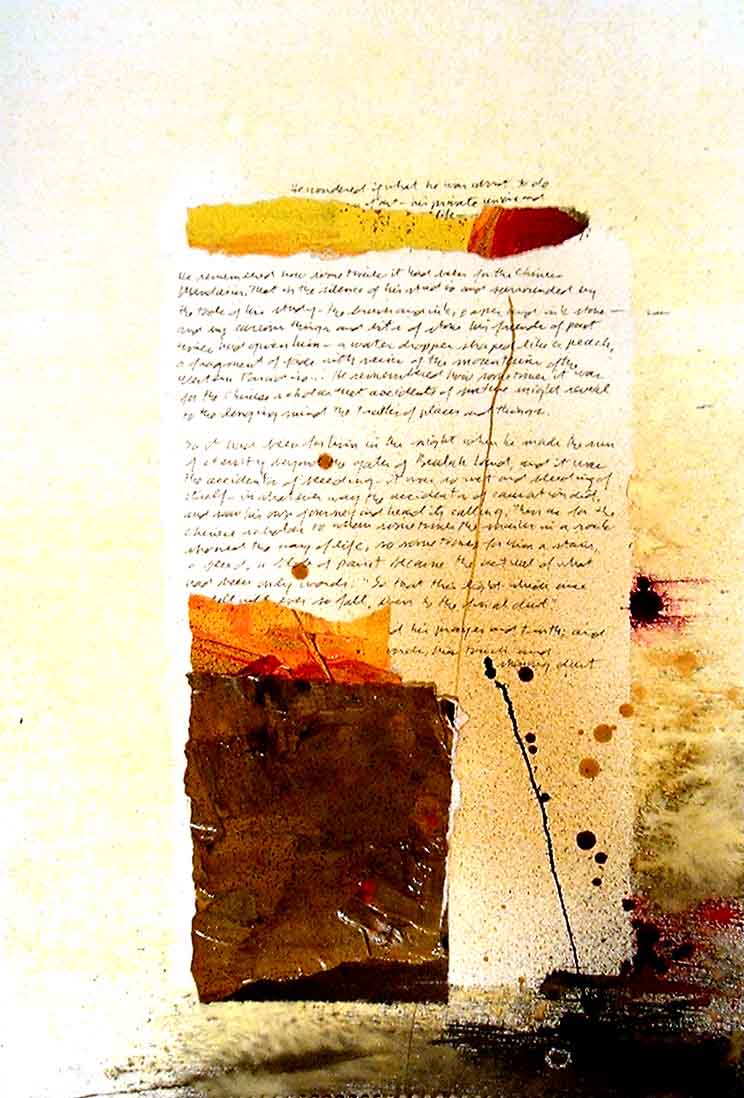 He wondered if what he was about to do
art - his private
life
He remembered how sometimes it had been for the Chinese
Mandarin. That in the silence of his studio and surrounded by
the tools of his study - the brush and ink, paper and ink stone -
and by curious things and bits of stone his friends of past
times had given him - a water dropper shaped like a peach,
a fragment of jade with veins of the mountains of the
Western Paradise... He remembered how sometimes it was
for the Chinese scholar that accidents of nature might reveal
to the longing mind the truths of places and things.
So it had been for him in the night when he made the
of eternity beyond the gates of Beulah Land, and it was
the accidents of bleeding. It was so wet and bleeding of
itself - in whatever way the accidents of did,
and saw his own journey and heard its calling. Then as for the
Chinese scholar to whom sometimes the in a rock
showed the way of life, so sometimes for him a stain,
a bleed, a of paint became the of what
had been only words: "So that this light which once
fell will ever so fall, even to the final dust"
d his prayer and truth; and
his truth and
dust